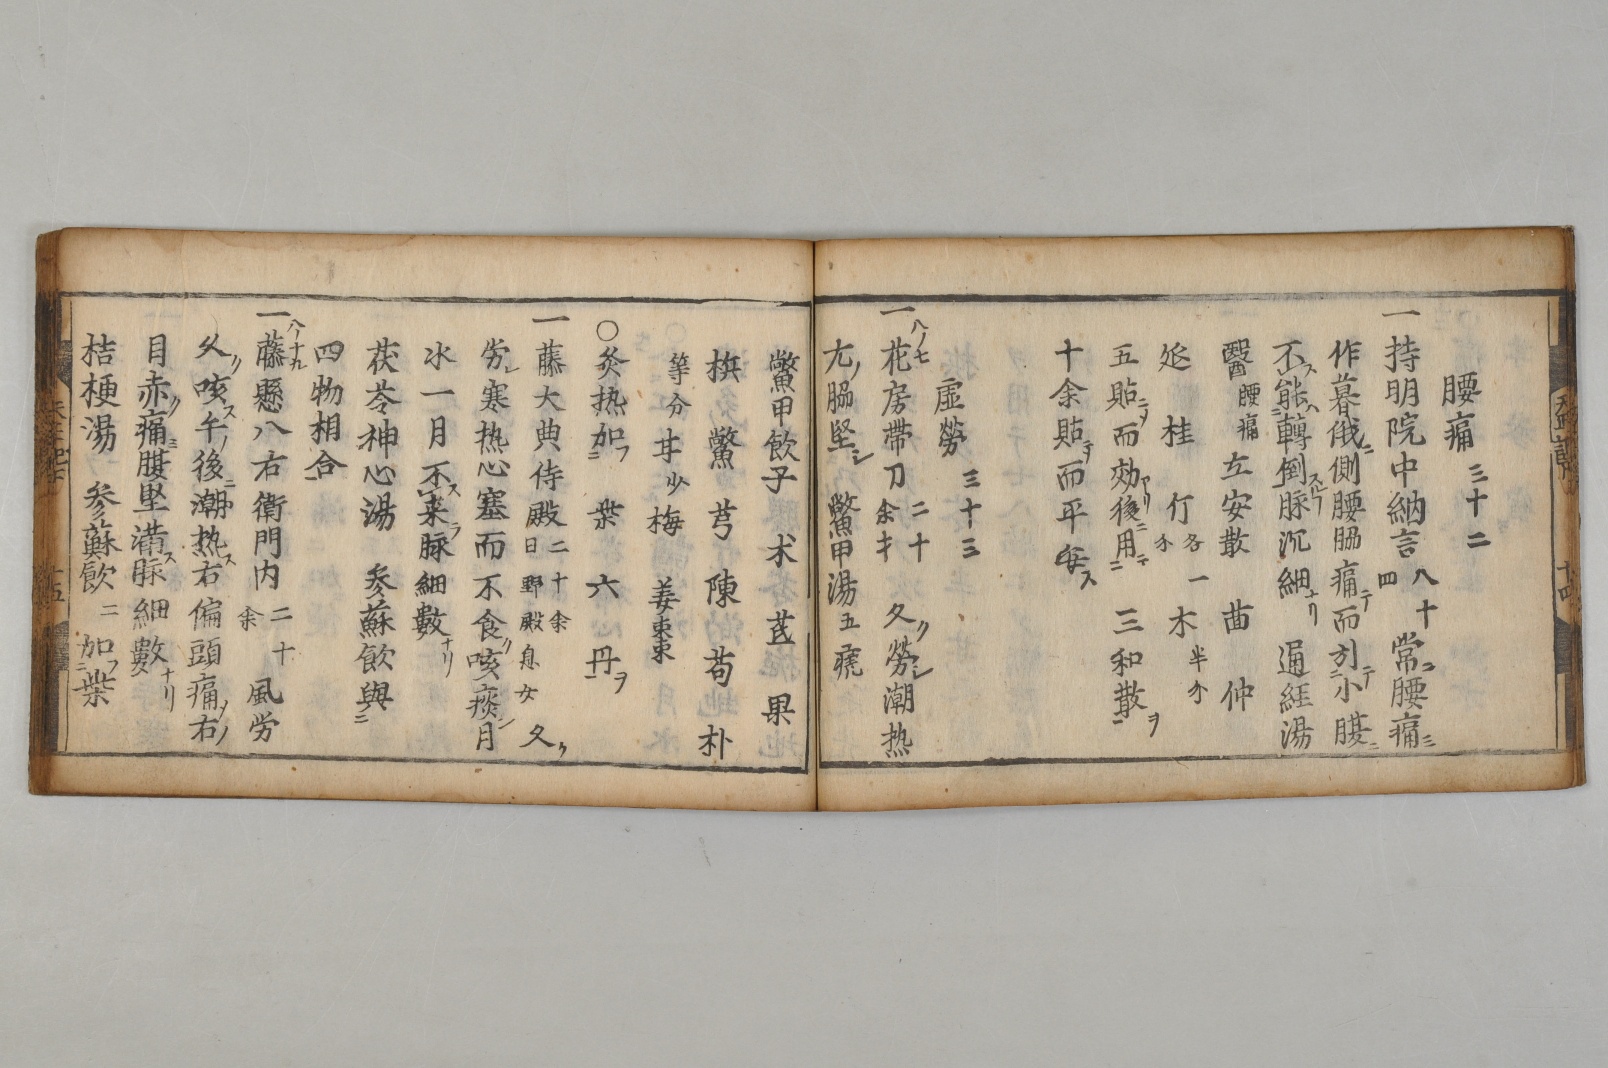 腰痛 三十二
一持明院中納言 八十四 常ニ腰痛ミ
作暮俄ニ側腰脇痛テ而引テ小腹ニ
不能轉倒スルフ脉沉細ナリ 通経湯
醫 腰痛 立安散 茴 仲
延 桂 各一介 木 半介
五貼ヲ而効アリ後ニ用テ 三和散ヲ
十余貼ヲ而平安ス
虚勞 三十三
一 八ノ七 花房帯刀 二十余才 久ク勞シ潮热
左ノ脇堅シ 鱉甲湯 五痨
鱉甲飲子 术 芪 果
槟 鱉 芎 陳 芍 朴
等分 甘少 梅 姜 棗
○炙热加フ 柴 六 丹ヲ
一藤大典侍殿 二十余 日野殿息女 久ク
労シ寒热心塞而不食ク咳痰シ月
水一月不来ラ脉細數ナリ
茯苓神心湯 參蘇飲與ニ
四物相合
一 八ノ十九 藤懸八右衛門内 二十余 風労
久ク咳ス午ノ後ニ潮热ス右偏頭痛ノ右ノ
目赤ク痛ミ腹堅滿ス脉細數ナリ
桔梗湯 參蘇飲ニ 加フ柴